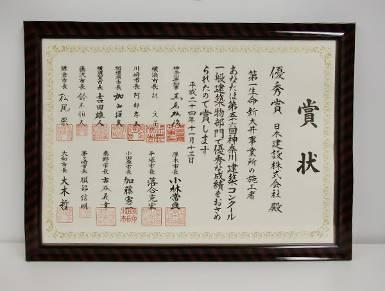 賞状
優秀賞 日本建設株式会社 殿
第一生命新大井事業所の施工者
あなたは第五十六回神奈川建築コンクール
一般建築物部門で優秀な成績をおさめ
られたので賞します
平成二十四年十一月十三日
神奈川県知事 黒岩祐治
横浜市長 林 文子
川崎市長 阿部孝夫
相模原市長 加山俊夫
横須賀市長 吉田雄人
藤沢市長 鈴木恒夫
鎌倉市長 松尾 崇
厚木市長 小林常良
平塚市長 落合克宏
小田原市長 加藤憲一
秦野市長 古谷義幸
茅ヶ崎市長 服部信明
大和市長 大木 哲